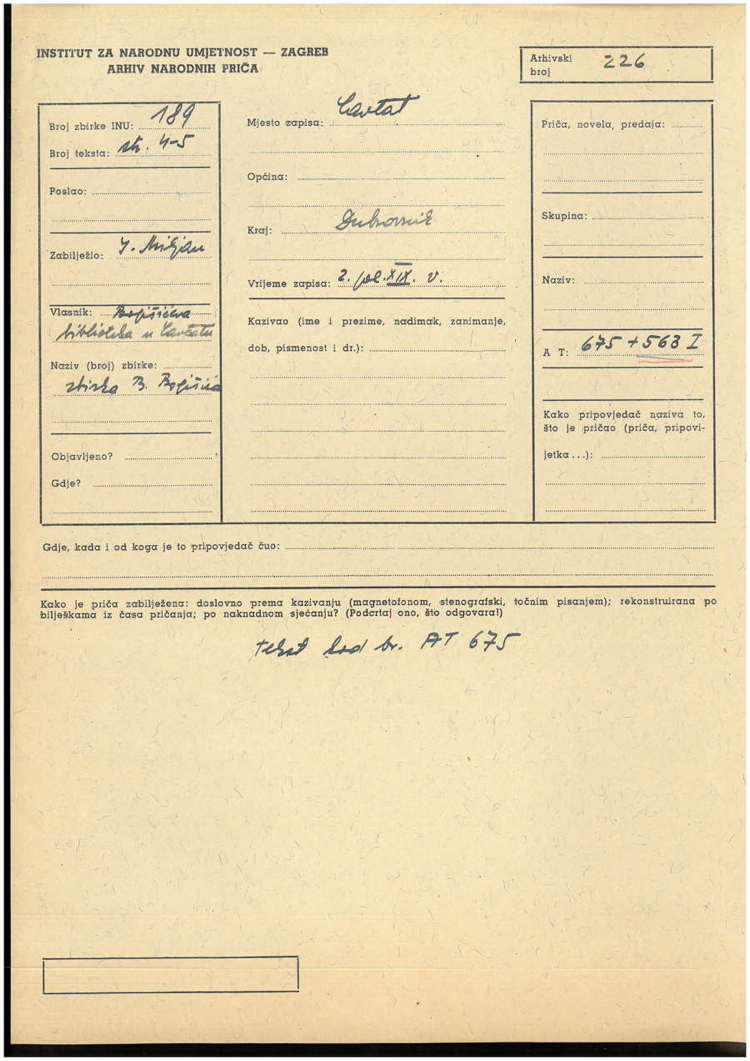 INSTITUT ZA NARODNU UMJETNOST — ZAGREB
ARHIV NARODNIH PRIČA
Arhivski broj 226
Broj zbirke INU: 189
Broj teksta: str. 4-5
Poslao:
Zabilježio: J. Miljan
Vlasnik: Bogišićeva
biblioteka u Cavtatu
Naziv (broj) zbirke:
zbirka B. Bogišića
Objavljeno?
Gdje?
Mjesto zapisa: Cavtat
Općina:
Kraj: Dubrovnik
Vrijeme zapisa: 2. pol. XIX. v.
Kazivao (ime i prezime, nadimak, zanimanje,
dob, pismenost i dr.):
Priča, novela, predaja:
Skupina:
Naziv:
A T: 675 + 563 I
Kako pripovjedač naziva to,
što je pričao (priča, pripovi-
jetka...):
Gdje, kada i od koga je to pripovjedač čuo:
Kako je priča zabilježena: doslovno prema kazivanju (magnetofonom, stenografski, točnim pisanjem); rekonstruirana po
bilješkama iz časa pričanja; po naknadnom sjećanju? (Podcrtaj ono, što odgovara!)
tekst kod br. AT 675